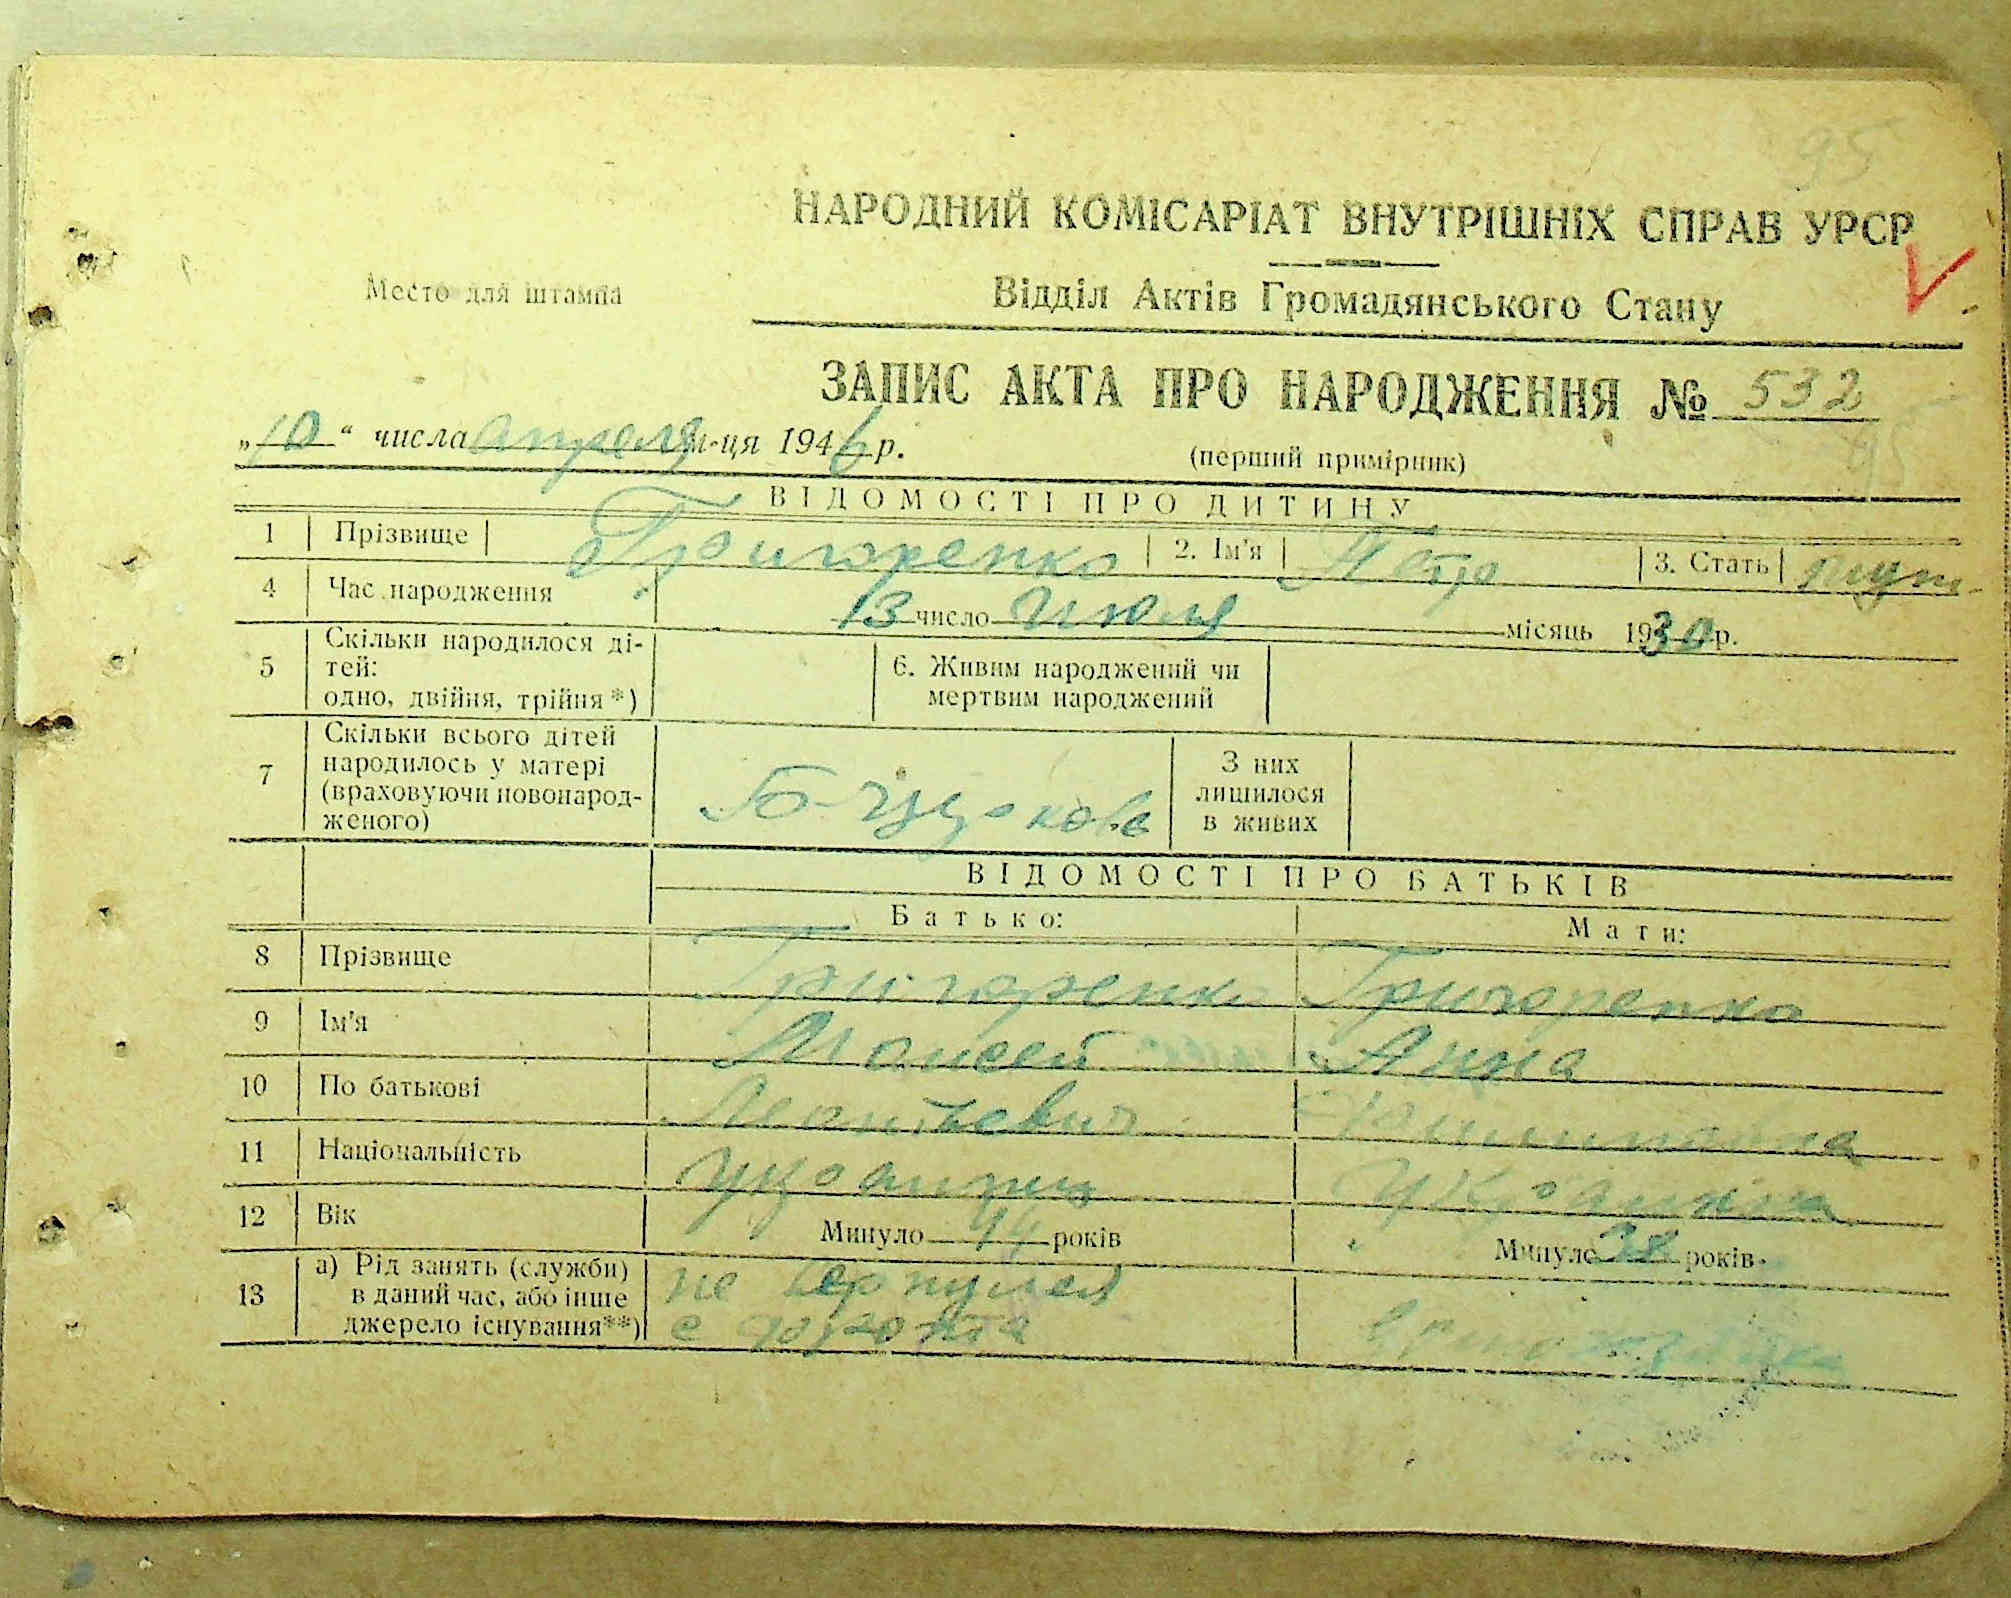 95
НАРОДНИЙ КОМІСАРІАТ ВНУТРІШНІХ СПРАВ УРСР
Место для штампа
Відділ Актів Громадянського Стану
ЗАПИС АКТА ПРО НАРОДЖЕННЯ № 532
„10“ числа апреля м-ця 1946 р.
(перший примірник)
ВІДОМОСТІ ПРО ДИТИНУ
1 Прізвище Григоренко 2. Ім'я Петр 3. Стать муж.
4 Час народження 13 число июля місяць 1930 р.
5 Скільки народилося ді-
тей:
одно, двійня, трійня*)
6. Живим народжений чи
мертвим народжений
7 Скільки всього дітей
народилось у матері
(враховуючи новонарод-
женого)
З них
лишилося
в живих
ВІДОМОСТІ ПРО БАТЬКІВ
Батько: Мати:
8 Прізвище Григоренко Григоренко
9 Ім'я Моисей Анна
10 По батькові Леонтьевич
11 Національність украинец Украинка
12 Вік Минуло 44 років Минуло 38 років
13 а) Рід занять (служби)
в даний час, або інше
джерело існування**)
не вернулся
с фронта